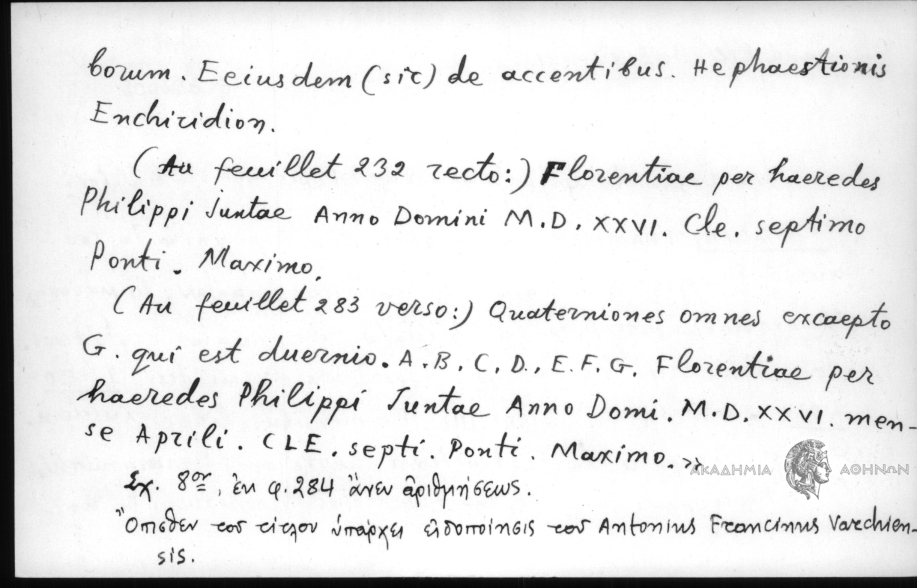 borum. Eeiusdem (sic) de accentibus. Hephaestionis
Enchiridion.
(Au feuillet 232 recto:) Florentiae per haeredes
Philippi Juntae Anno Domini M.D.XXVI. Cle. septimo
Ponti. Maximo.
(Au feuillet 283 verso:) Quaterniones omnes excaepto
G. qui est duernio. A.B.C.D.E.F.G. Florentiae per
haeredes Philippi Juntae Anno Domi. M.D.XXVI. men-
se Aprili. CLE. septi. Ponti. Maximo.»
ΑΚΑΔΗΜΙΑ ΑΘΗΝΩΝ
Σχ. 8ον, ἐν φ. 284 ἄνευ ἀριθμήσεως.
Ὄπισθεν τοῦ τίτλου ὑπάρχει εἰδοποίησις τοῦ Antonius Francinus Varchien-
sis.